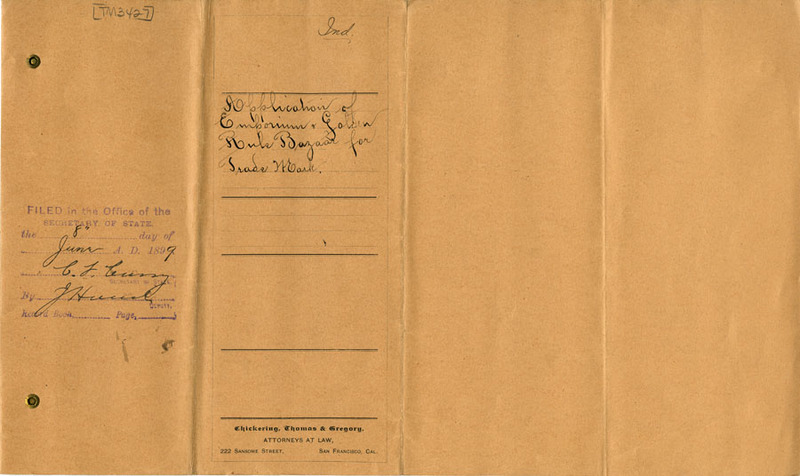 [TM3427]
Ind.
Application of
Emporium & Golden
Rule Bazaar for
Trade Mark.
FILED in the Office of the
SECRETARY OF STATE
the 8" day of
June A. D. 1899
C. F. Curry
SECRETARY OF STATE
By J Hoesch
DEPUTY.
Record Book Page,
Chickering, Thomas & Gregory,
ATTORNEYS AT LAW,
222 SANSOME STREET, SAN FRANCISCO, CAL.